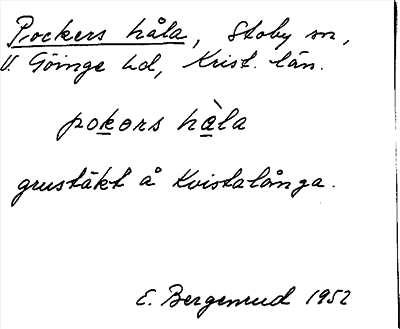 Pockers håla, Stoby sn,
V. Göinge hd, Krist. län.
pokors hàla
grustäkt å Kvistalånga.
E. Bergemud 1952